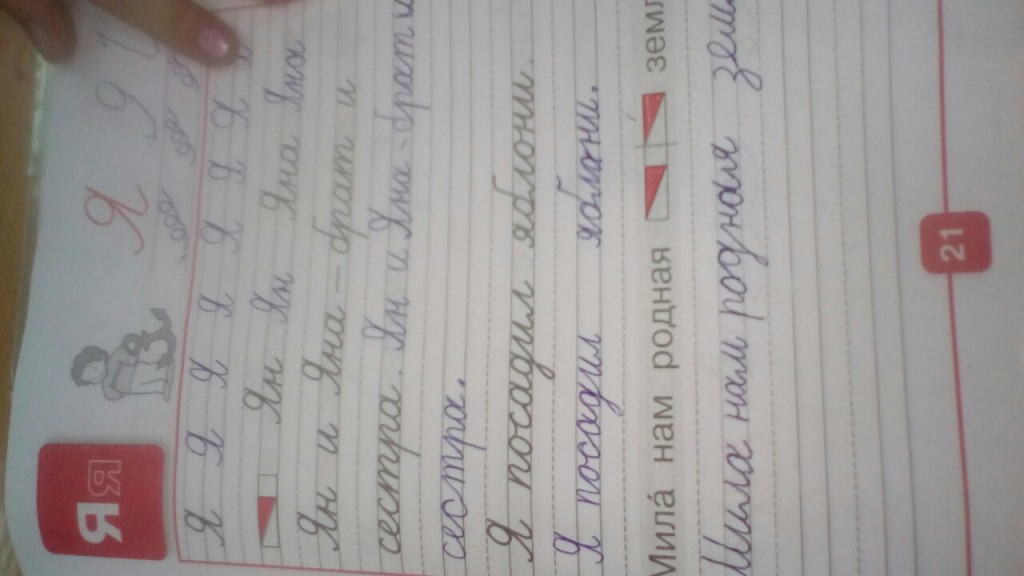 Я я
Я Я Я
Я Я Я Я Я Я Я Я
Ян Ян Яна Яна
Ян и Яна – брат и
сестра. Ян и Яна - брат и
сестра.
Я посадил яблони.
Я посадил яблони.
Мила́ нам родная
Мила нам родная
21